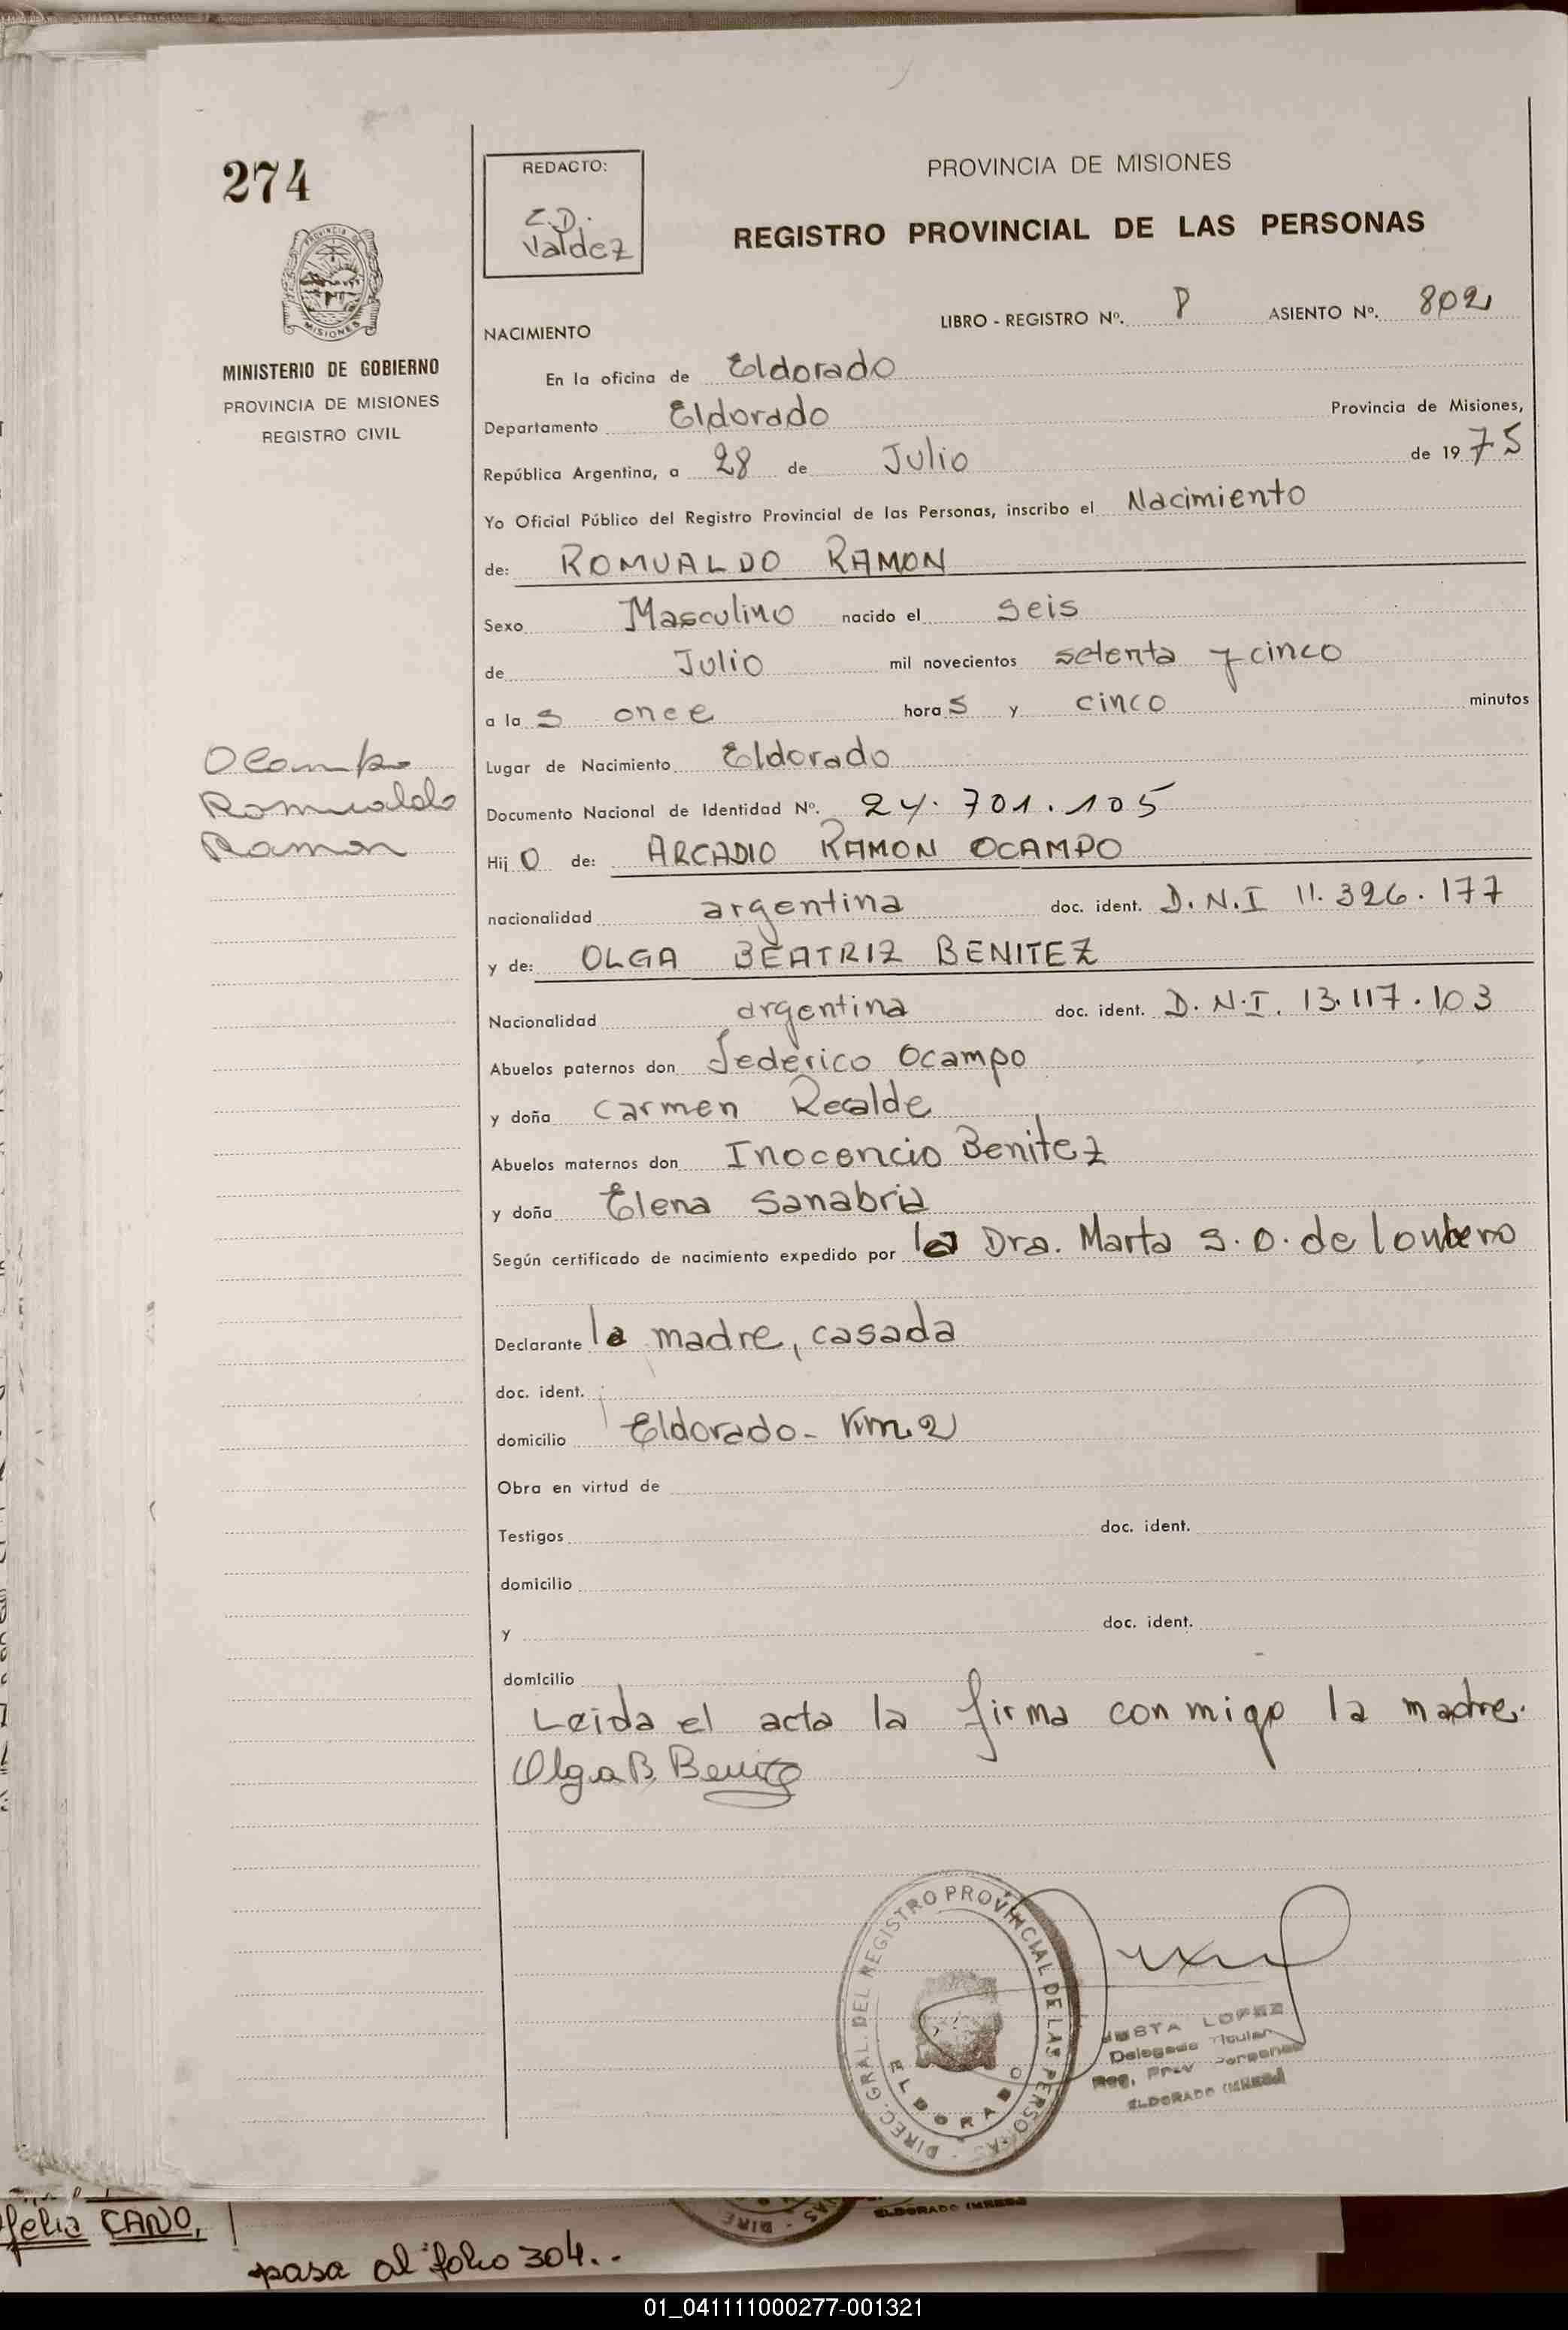 274
REDACTO:
E.D.
Valdez
PROVINCIA DE MISIONES
REGISTRO PROVINCIAL DE LAS PERSONAS
PROVINCIA DE
MISIONES
MINISTERIO DE GOBIERNO
PROVINCIA DE MISIONES
REGISTRO CIVIL
LIBRO - REGISTRO Nº. P ASIENTO Nº. 802
NACIMIENTO
En la oficina de Eldorado
Departamento Eldorado Provincia de Misiones,
República Argentina, a 28 de Julio de 1975
Yo Oficial Público del Registro Provincial de las Personas, inscribo el Nacimiento
de: ROMUALDO RAMON
Sexo Masculino nacido el seis
de Julio mil novecientos setenta y cinco
a las once horas y cinco minutos
Ocampo
Romualdo
Ramon
Lugar de Nacimiento Eldorado
Documento Nacional de Identidad Nº. 24.701.105
Hijo de: ARCADIO RAMON OCAMPO
nacionalidad argentina doc. ident. D.N.I 11.326.177
y de: OLGA BEATRIZ BENITEZ
Nacionalidad argentina doc. ident. D.N.I. 13.117.103
Abuelos paternos don Federico Ocampo
y doña Carmen Recalde
Abuelos maternos don Inocencio Benitez
y doña Elena Sanabria
Según certificado de nacimiento expedido por la Dra. Marta S.O. de
Declarante la madre, casada
doc. ident.
domicilio Eldorado - Km. 2
Obra en virtud de
Testigos doc. ident.
domicilio
y doc. ident.
domicilio
Leida el acta la firma conmigo la madre.
Olga B. Benitez
DIREC. GRAL. DEL REGISTRO PROVINCIAL DE LAS PERSONAS
ELDORADO
JUSTA LOPEZ
Delegada Titular
Reg. Prov. Personas
ELDORADO (MNES)
felia CANO,
pasa al folio 304..
DIRE
ELDORADO (MNES)
01_041111000277-001321